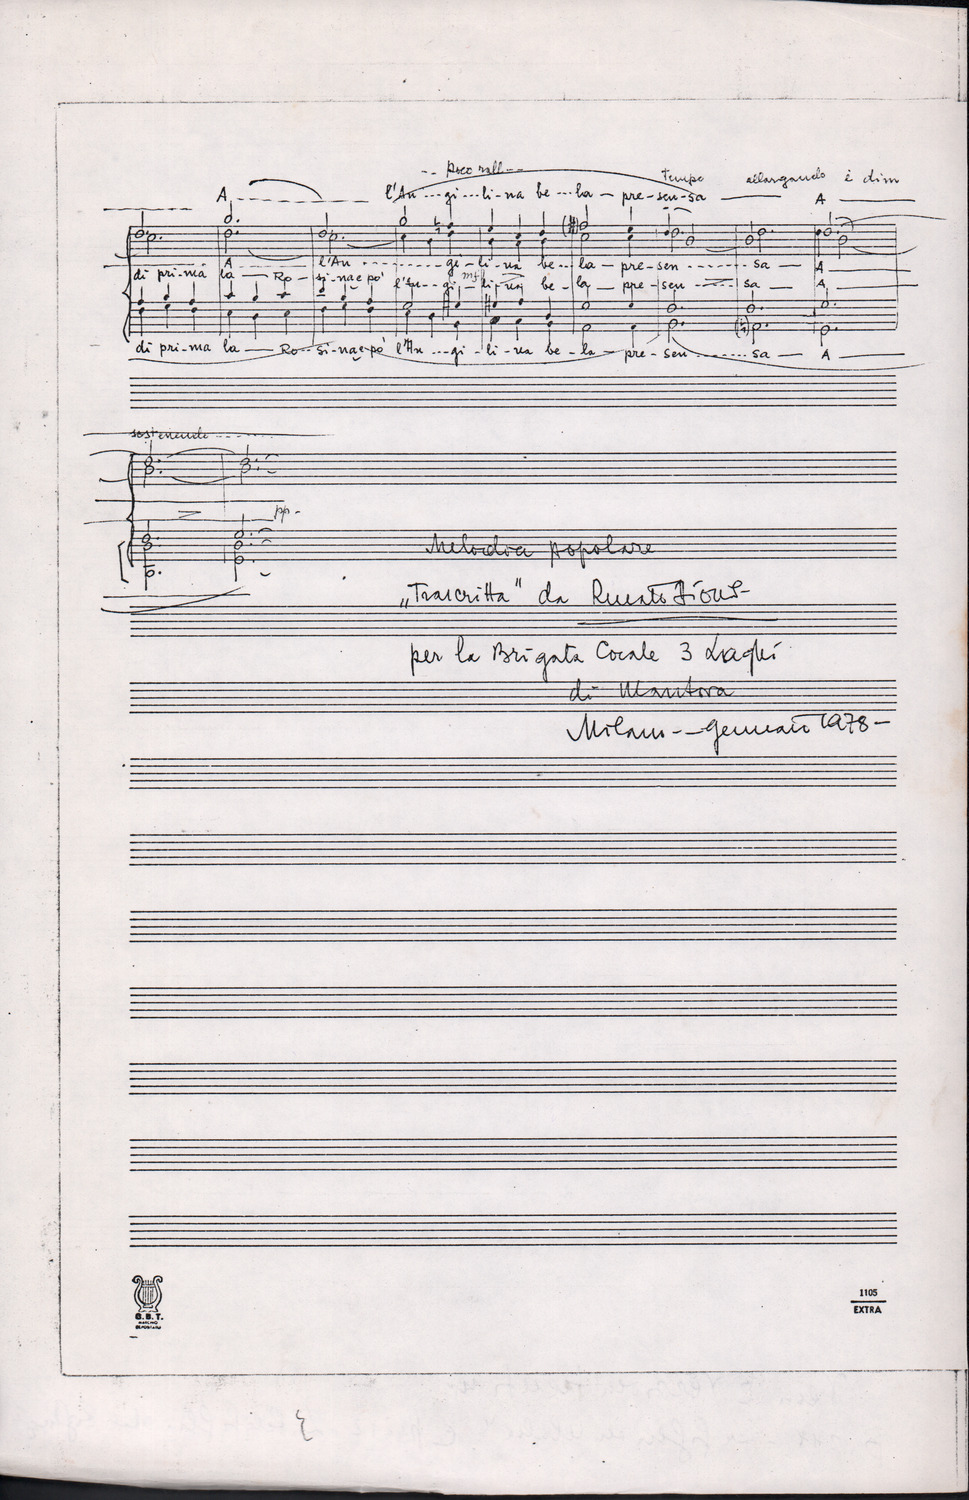 -- poco rall---
tempo allargando e dim
A l'An---gi-li-na be--la-pre-sen-sa A
A l'An gi-li-na be--la-pre-sen------sa-A
di pri-ma la-Ro-si-na e po' l'An--gi-li-na be-la-pre-sen sa-A
mf
di pri-ma la-Ro--si-na e pò l'An---gi-li-na be-la-pre-sen------sa-A
sostenendo
pp-
Melodia popolare
„Trascritta" da Renato
per la Brigata Corale 3 Laghi
di Mantova
Milano--Gennaio 1978-
G.B.T.
1105
EXTRA
3